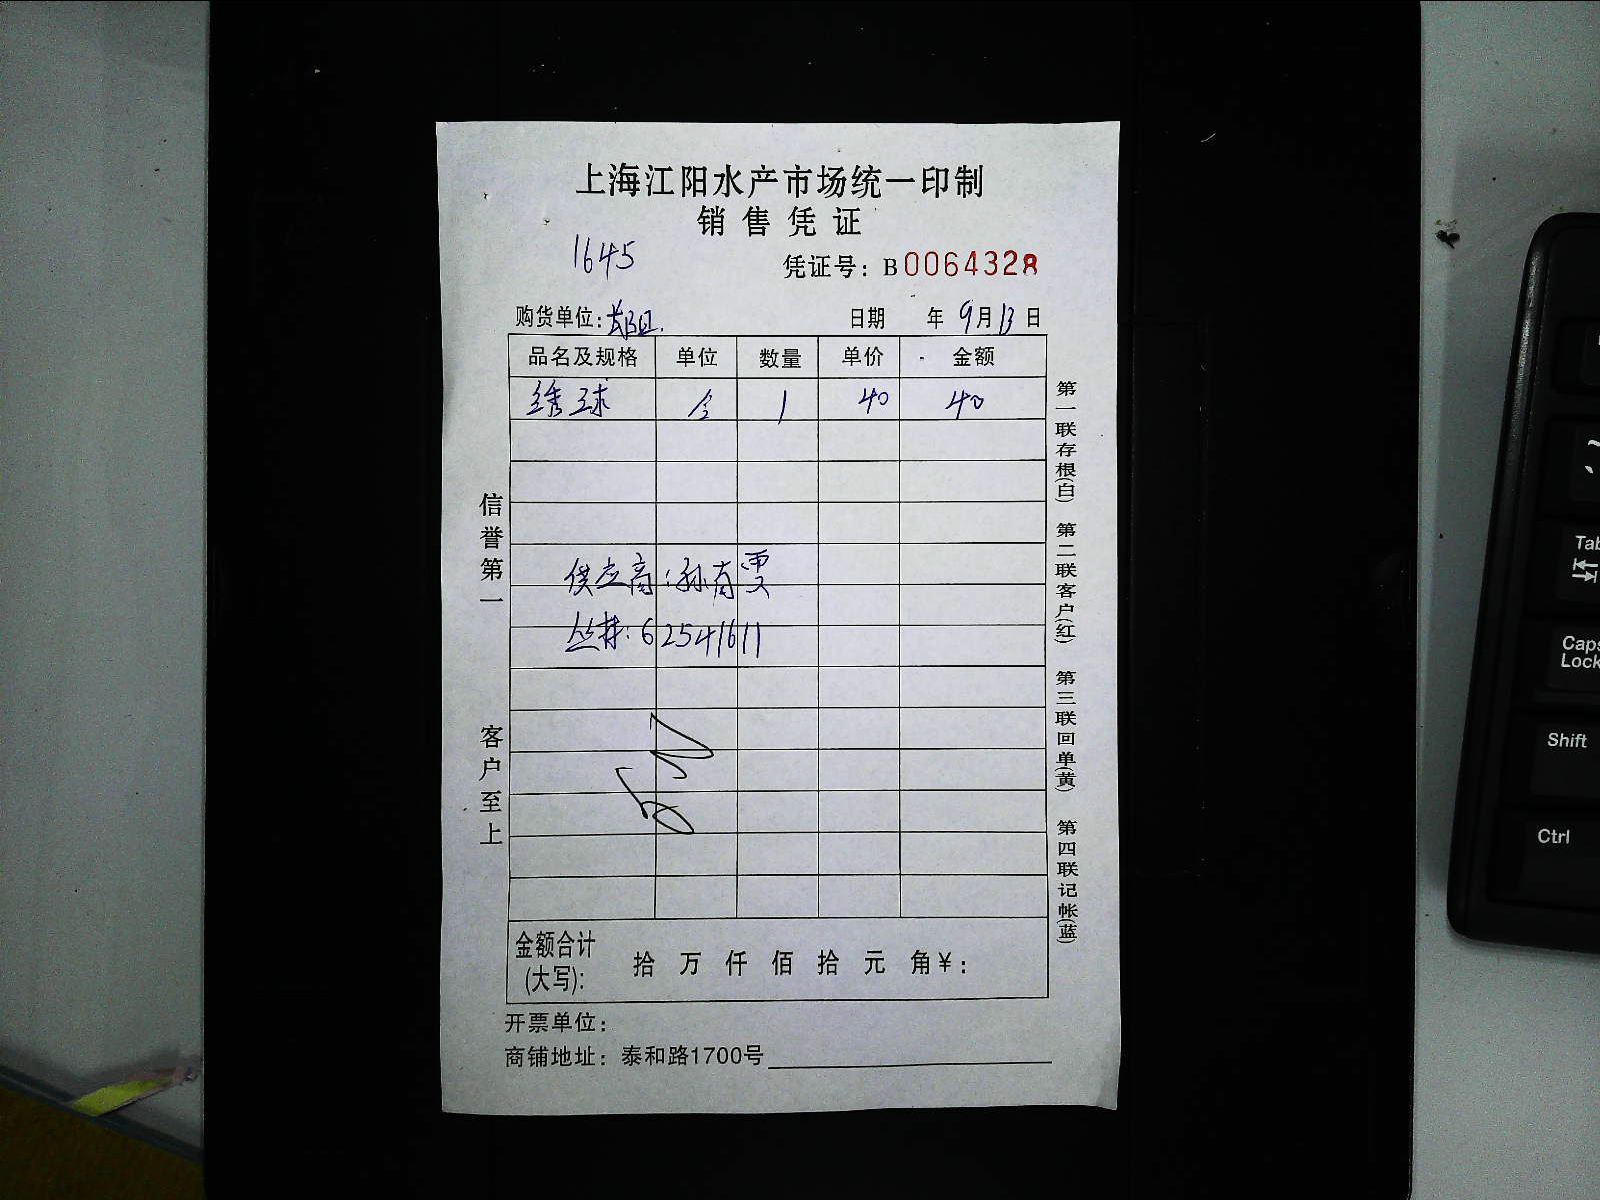 上海江阳水产市场统一印制
销售凭证
1645
凭证号: B0064328
购货单位:
日期 年 9月13日
品名及规格 单位 数量 单价 金额
绣球 个 1 40 40
供应商:孙有
丛林:62541611
金额合计(大写): 拾 万 仟 佰 拾 元 角¥:
开票单位:
商铺地址: 泰和路1700号
信誉第一
客户至上
第一联存根(白) 第二联客户(红) 第三联回单(黄) 第四联记帐(蓝)
Tab
Caps Lock
Shift
Ctrl